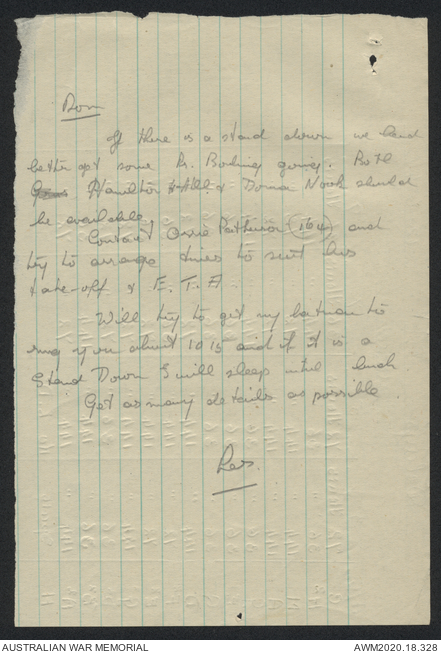 Don
If there is a stand down we had
better get some Pr. Bombing going. Both
Hamilton Hill & Donna Nook should
be available.
Contact Ossie (164) and
try to arrange times to suit his
take-off & E.T.A.
Will try to get my batman to
ring you about 1015 and if it is a
Stand Down I will sleep until lunch
Get as many details as possible
Les.
AUSTRALIAN WAR MEMORIAL
AWM2020.18.328